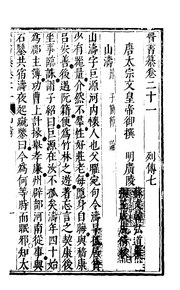 晉書纂卷二十一 列傳七
唐太宗文皇帝御撰 明廣陵
山濤
山濤字巨源河內懷人也父曜宛句令濤早孤居貧少
有器量介然不羣性好莊老每隱身自晦與嵇康
呂安善後遇阮籍便為竹林之遊著忘言之契康後
坐事臨誅謂子紹曰巨源在汝不孤矣濤年四十始
為郡主簿功曹上計掾舉孝廉州辟部河南從事與
石鑒共宿濤夜起蹴鑒曰今為何等時而眠邪知太